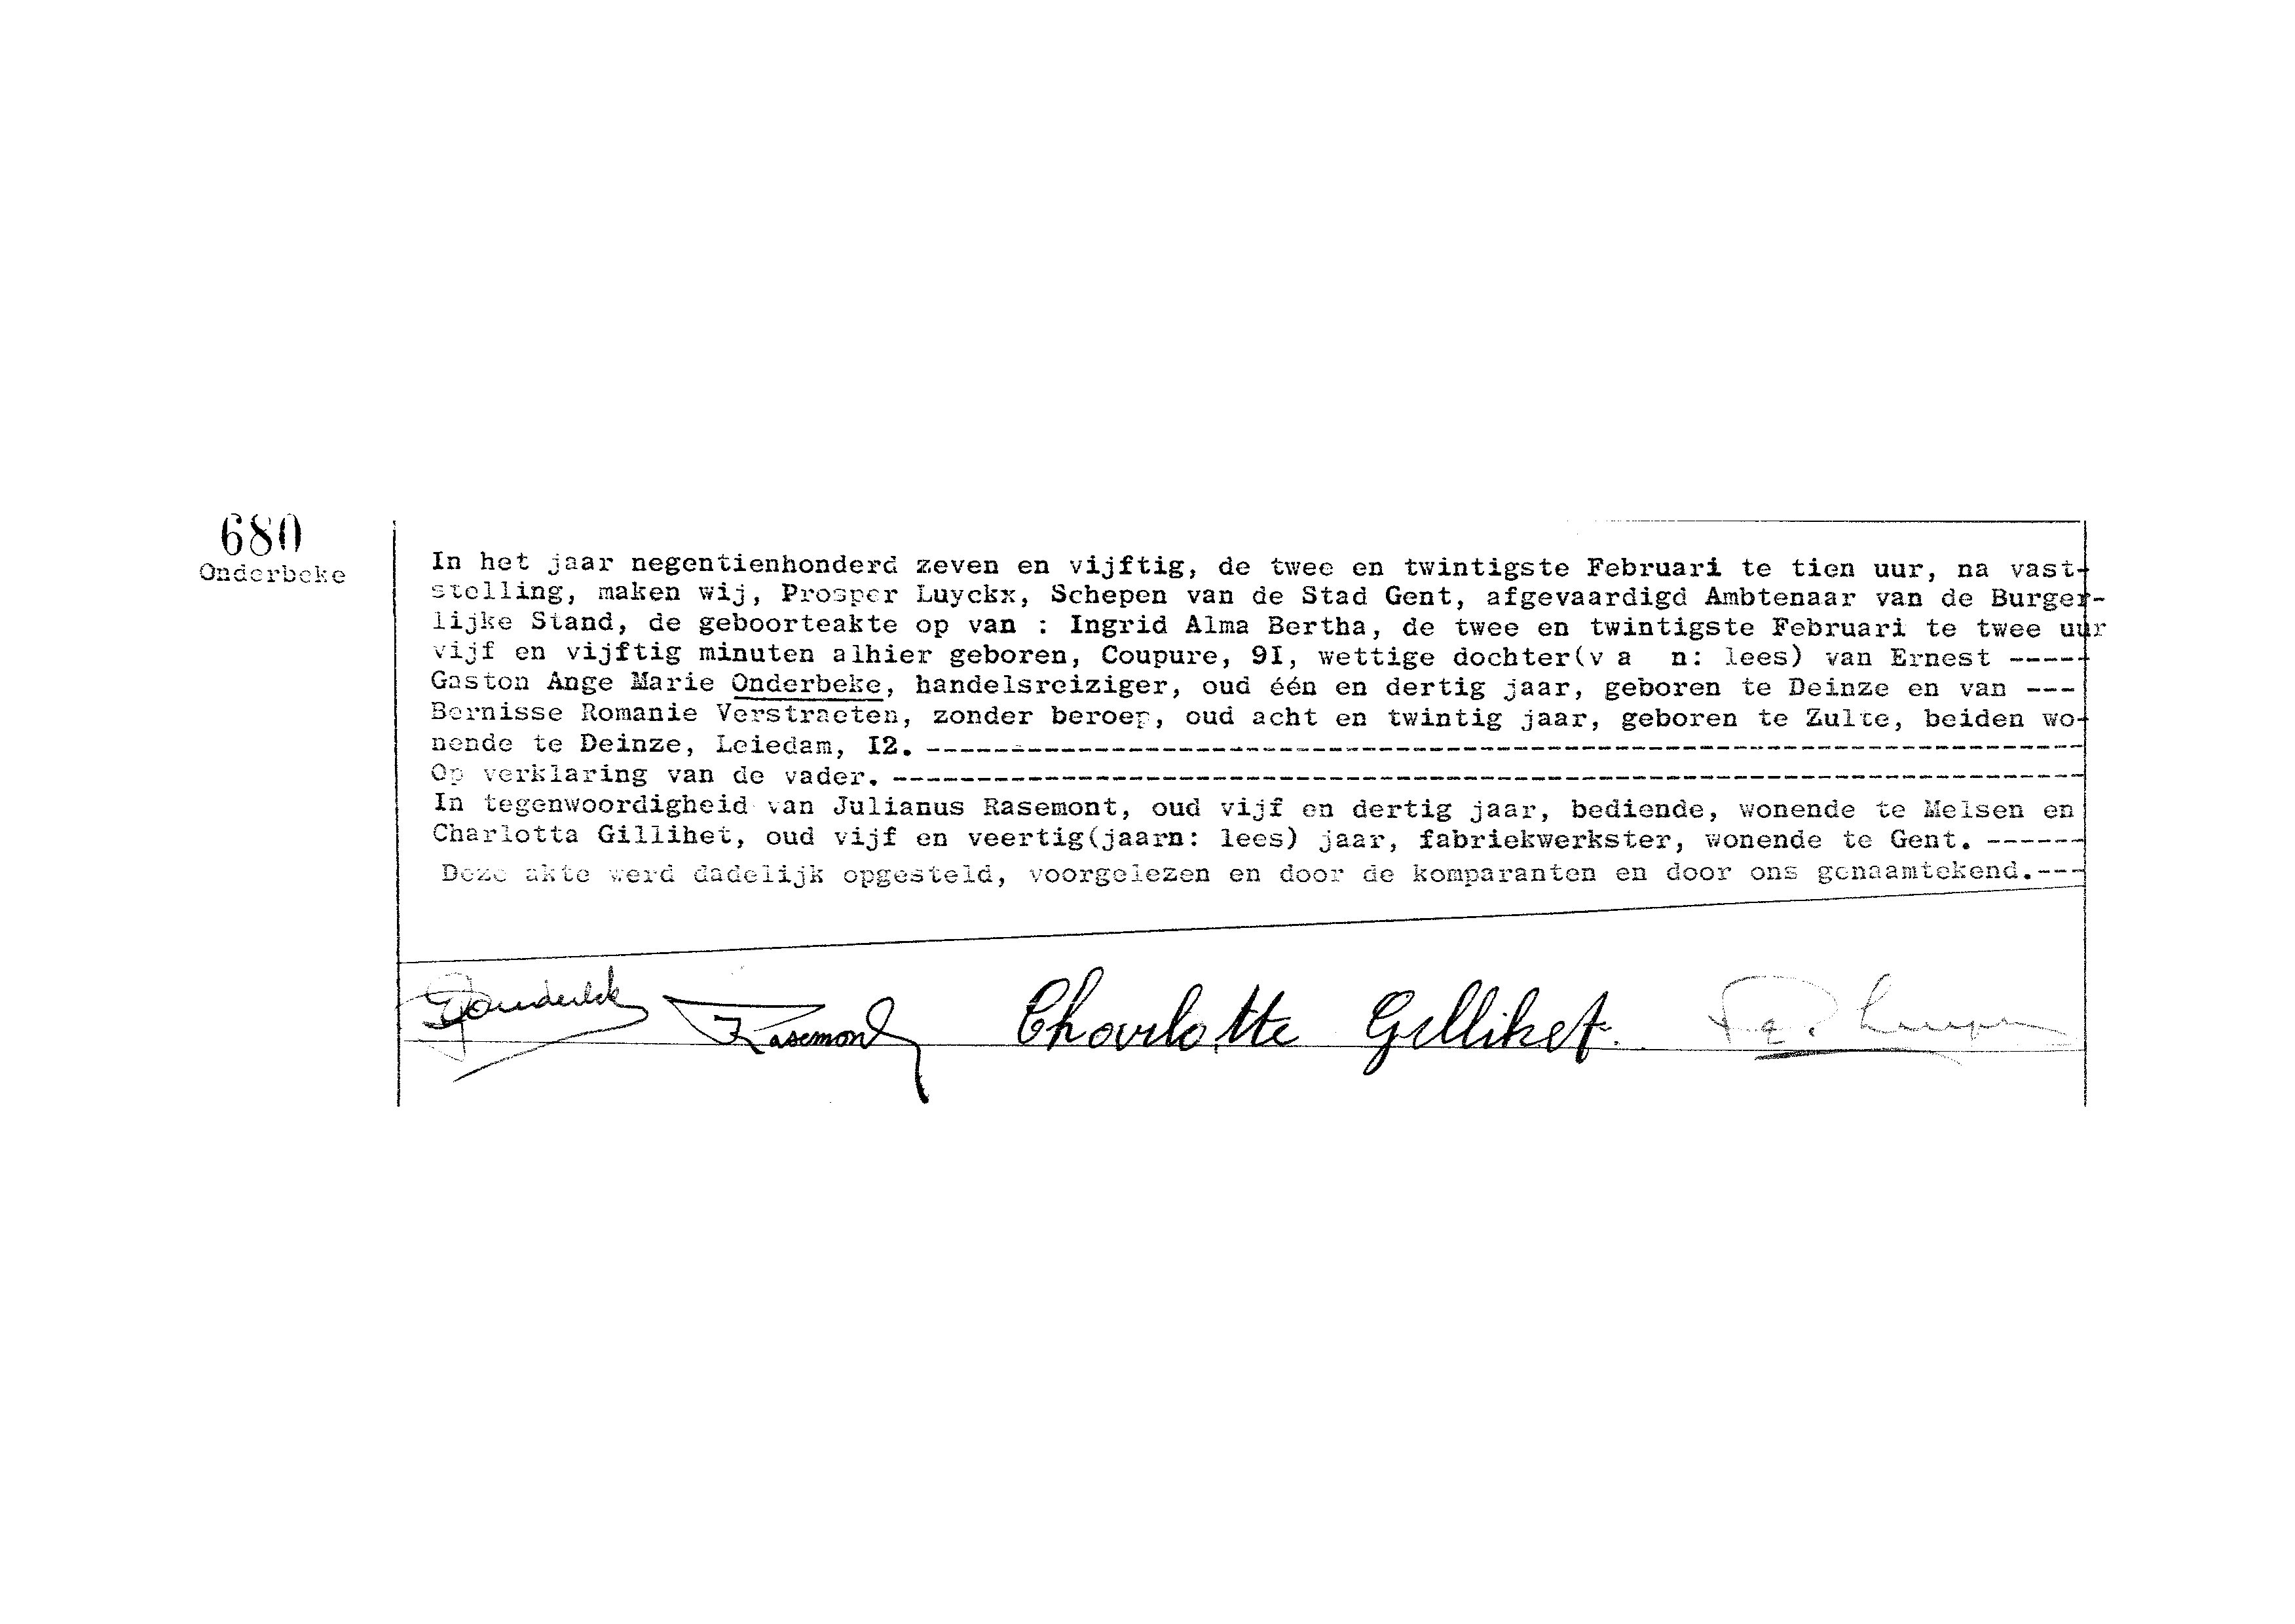 680
Onderbeke
In het jaar negentienhonderd zeven en vijftig, de twee en twintigste Februari te tien uur, na vast-
stelling, maken wij, Prosper Luyckx, Schepen van de Stad Gent, afgevaardigd Ambtenaar van de Burger-
lijke Stand, de geboorteakte op van : Ingrid Alma Bertha, de twee en twintigste Februari te twee uur
vijf en vijftig minuten alhier geboren, Coupure, 9I, wettige dochter(v a n: lees) van Ernest -----
Gaston Ange Marie Onderbeke, handelsreiziger, oud één en dertig jaar, geboren te Deinze en van ---
Bernisse Romanie Verstraeten, zonder beroep, oud acht en twintig jaar, geboren te Zulte, beiden wo-
nende te Deinze, Leiedam, I2. ---------------------------------------------------------------------
Op verklaring van de vader. -----------------------------------------------------------------------
In tegenwoordigheid van Julianus Rasemont, oud vijf en dertig jaar, bediende, wonende te Melsen en
Charlotta Gillihet, oud vijf en veertig(jaarn: lees) jaar, fabriekwerkster, wonende te Gent. ------
Deze akte werd dadelijk opgesteld, voorgelezen en door de komparanten en door ons genaamtekend.---
Rasemont Charlotte Gillihet.